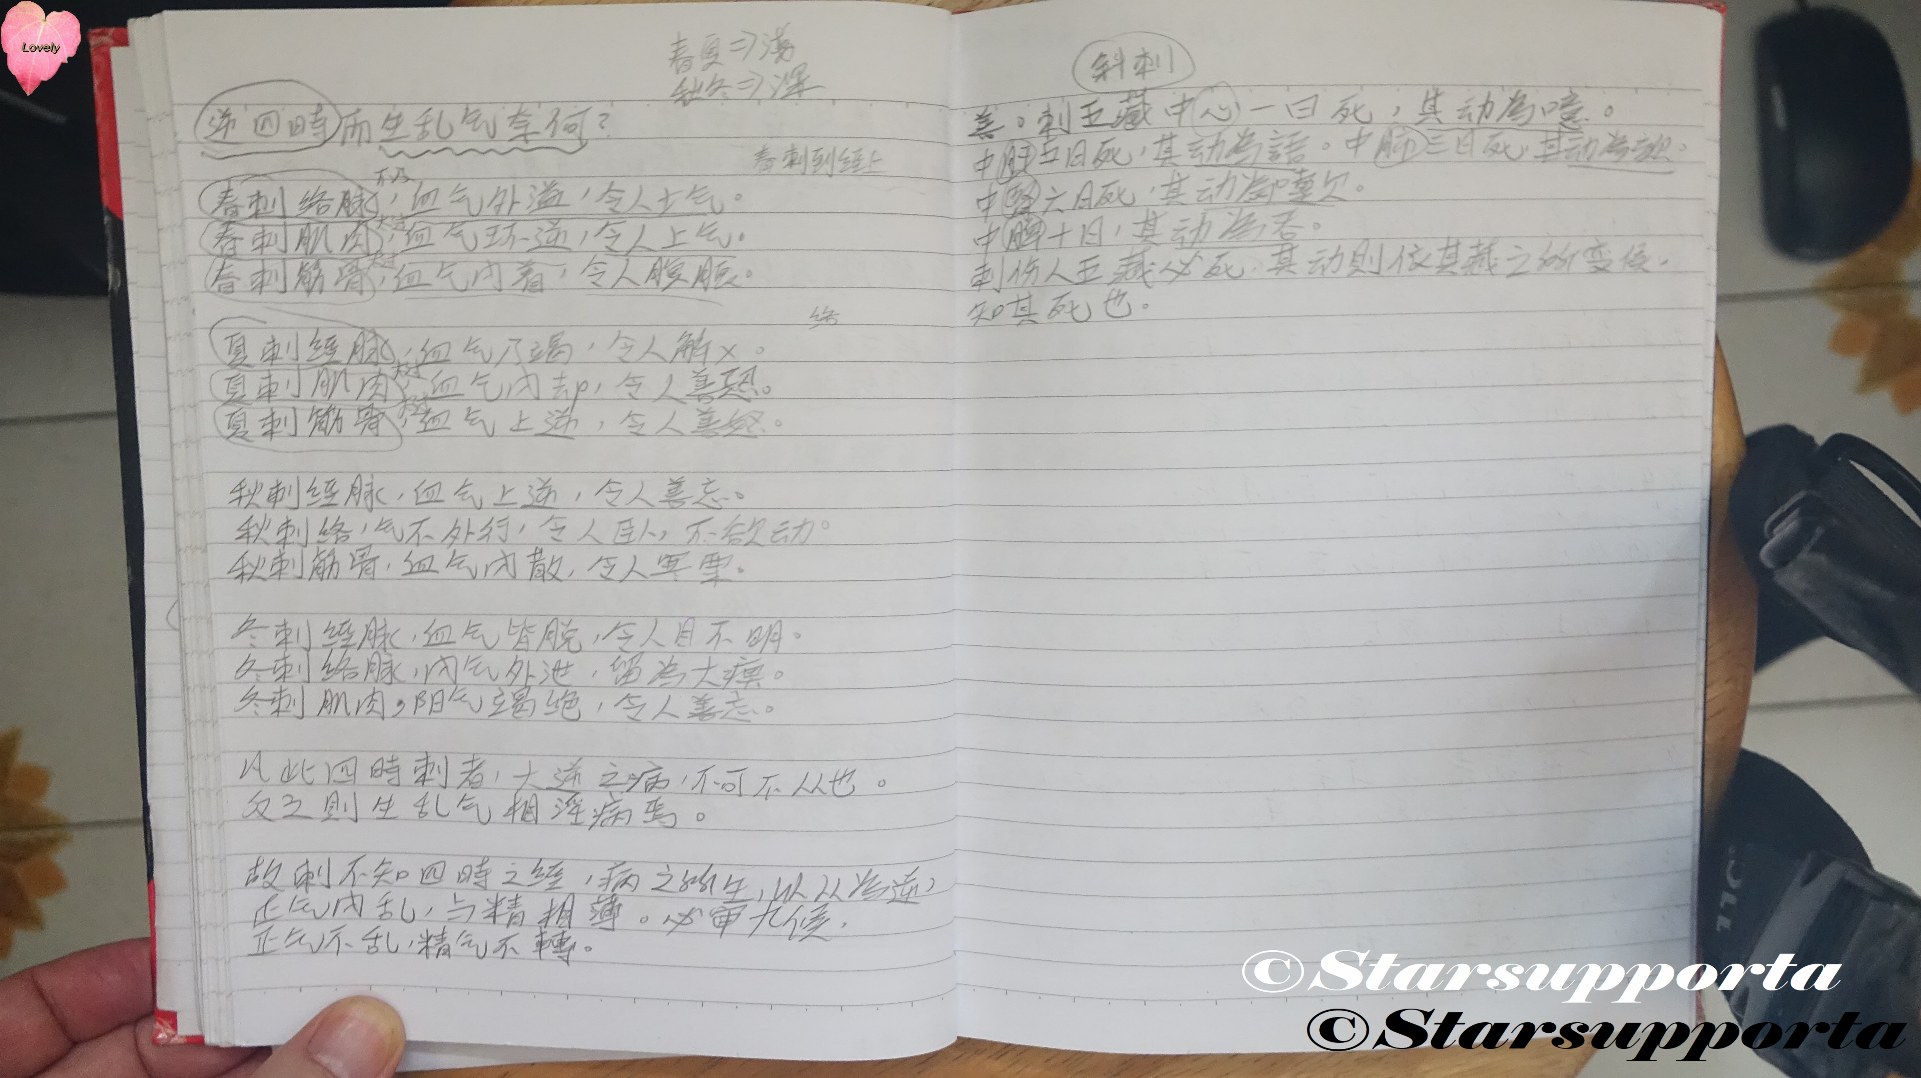 Lovely
春夏⇒淺
秋冬⇒深
逆四時而生乱气奈何?
春刺到经上
不及
春刺络脉,血气外溢,令人上气。
太过
春刺肌肉,血气环逆,令人上气。
太过
春刺筋骨,血气内着,令人腹胀。
络
夏刺経脉,血气乃竭,令人解㐅。
太过
夏刺肌肉,血气内却,令人善恐。
太过
夏刺筋骨,血气上逆,令人善怒。
秋刺経脉,血气上逆,令人善忘。
秋刺络,气不外行,令人卧,不欲动。
秋刺筋骨,血气内散,令人寒栗。
冬刺経脉,血气皆脱,令人目不明。
冬刺络脉,内气外泄,留為大痹。
冬刺肌肉,阳气竭绝,令人善忘。
凡此四時刺者,大逆之病,不可不从也。
反之則生乱气相淫病焉。
故刺不知四時之経,病之所生,以从為逆,
正气内乱,与精相薄。必审九候,
正气不乱,精气不轉。
斜刺
善。刺五藏中心一日死,其动為噫。
中肝五日死,其动為語。中肺三日死,其动為欬。
中腎六日死,其动為嚏欠。
中脾十日,其动為吞。
刺伤人五藏必死,其动則依其藏之所变候,
知其死也。
©Starsupporta
©Starsupporta